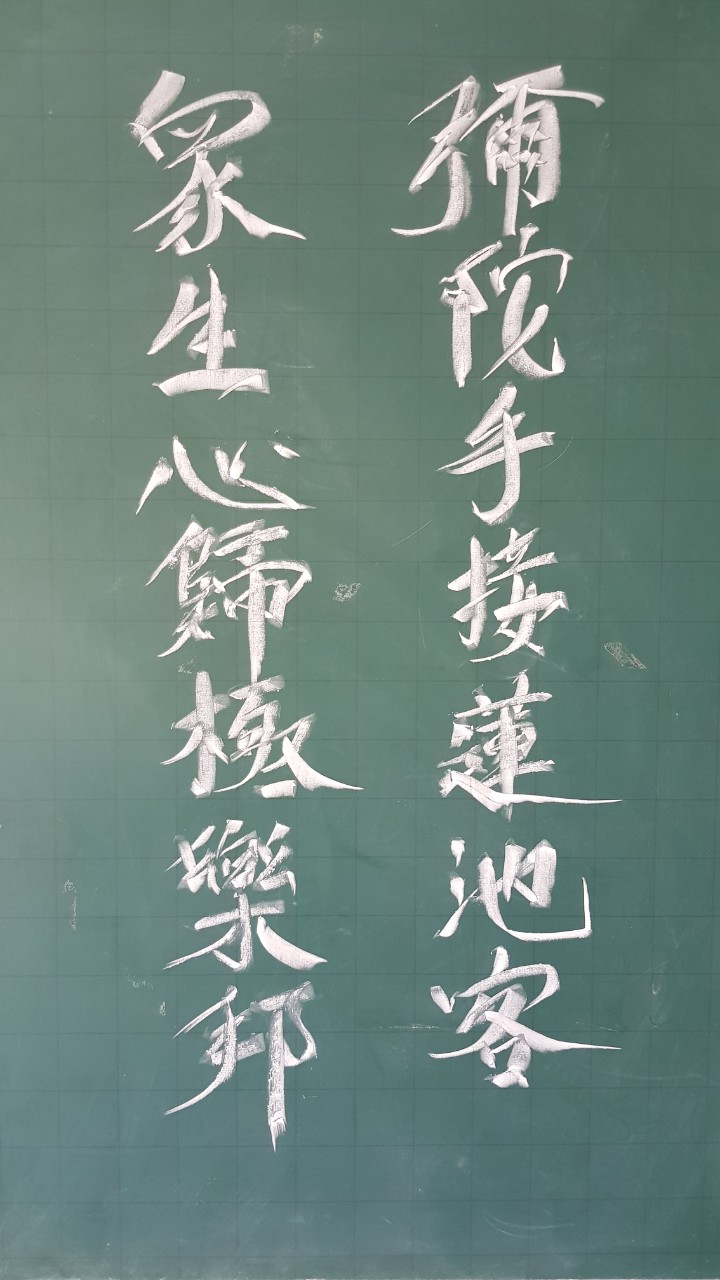 彌陀手接蓮池客
眾生心歸極樂邦